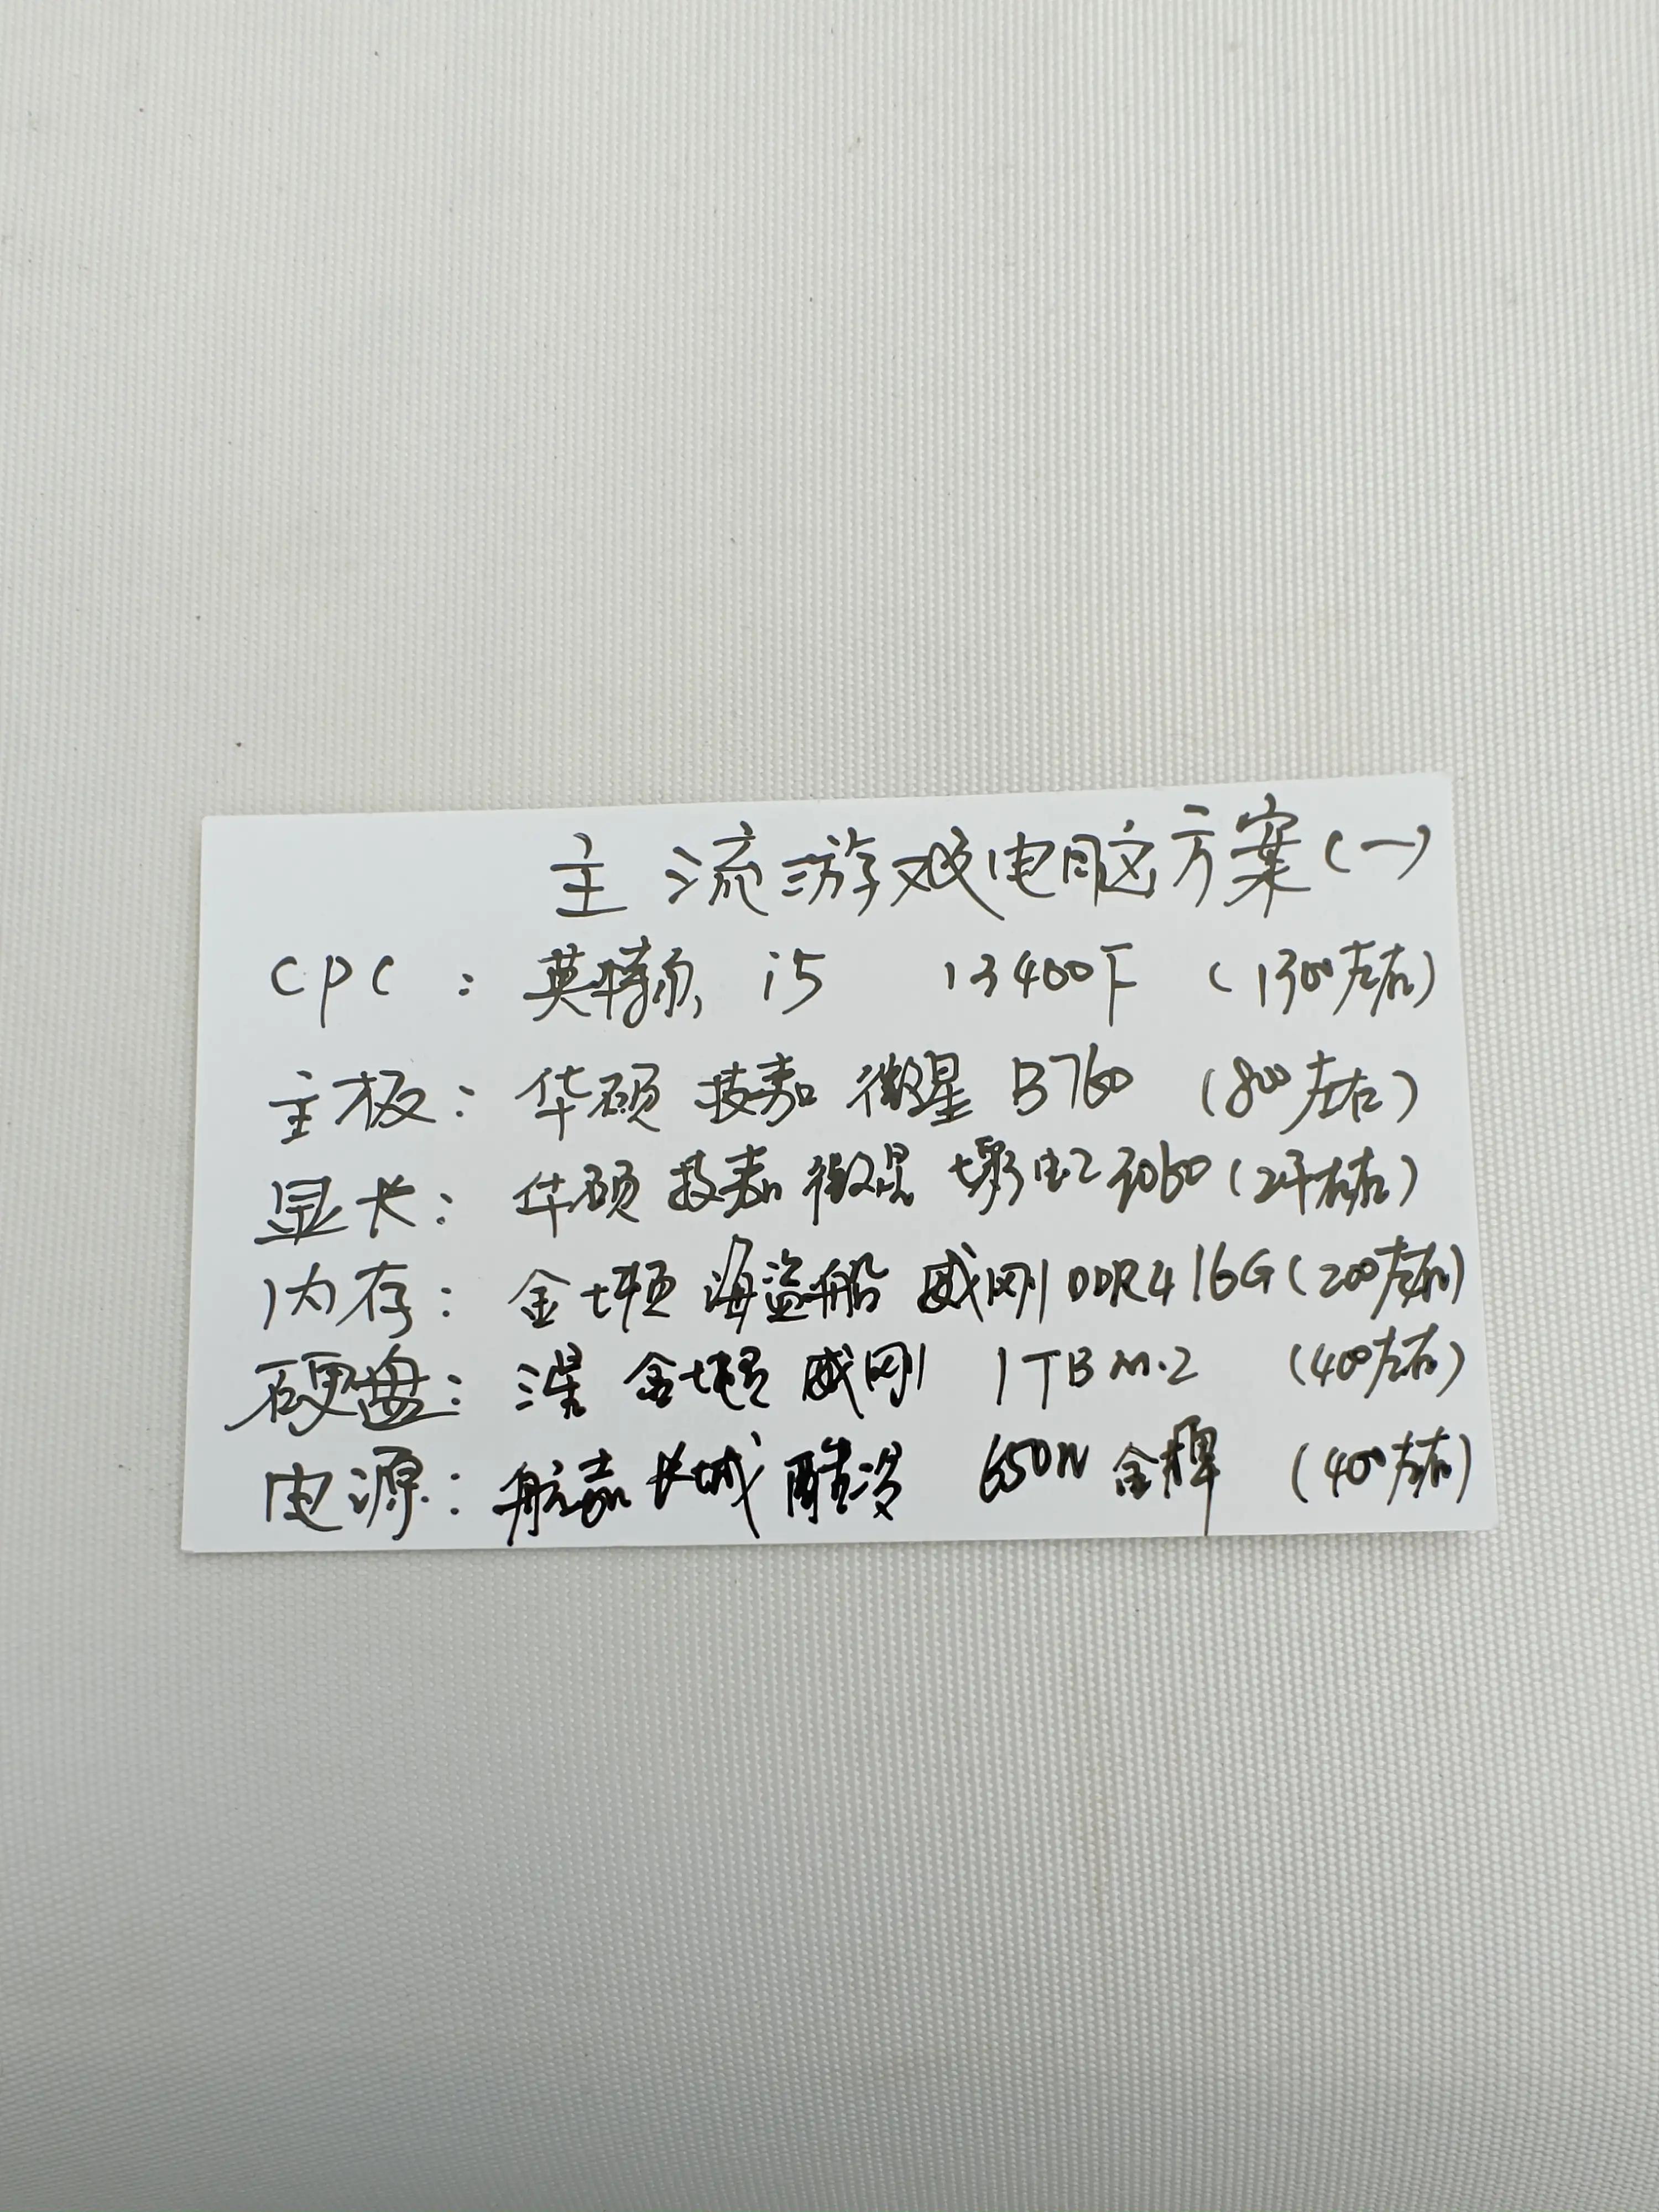 主流游戏电脑方案(一)
CPC：英特尔 i5 13400下 (1300左右)
主板：华硕 技嘉 微星 B760 (800左右)
显长：华硕 技嘉 微星 3060 (2千左右)
内存：金士顿 海盗船 威刚 DDR4 16G (200左右)
硬盘：三星 金士顿 威刚 1TB M.2 (400左右)
电源：航嘉 长城 酷冷 650W 金牌 (400左右)